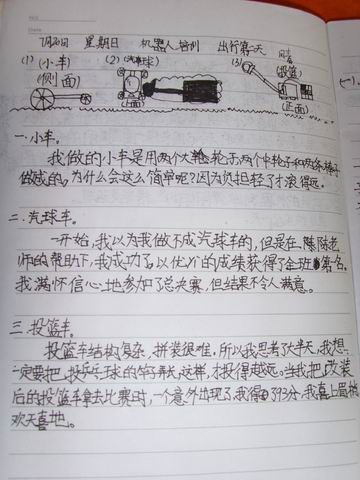 7月20日 星期日 机器人培训 出行第一天
(1)小车 (2)(汽车球) (3)
(侧面) (上面) (投篮) (正面)
一.小车。
我做的小车是用两个大轮子,两个中轮子和两条棒子
做成的,为什么会这么简单呢?因为负担轻了才滚得远。
二.汽球车。
一开始,我以为我做不成汽球车的,但是在陈老
师的帮助下,我成功了,以优介的成绩获得了全班第名。
我满怀信心地参加了总决赛,但结果不令人满意。
三.投篮车。
投篮车结构复杂,拼装很难,所以我思考了大半天,我想
一定要把投乒乓球的竿子弄大,这样,才投得越远。当我把改装
后的投篮车拿去比赛时,一个意外出现了,我得393分,我喜上眉梢
欢天喜地。